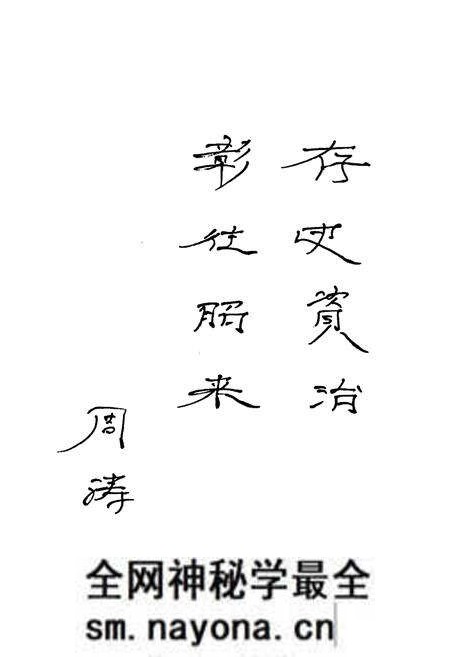 存史資治
彰往昭来
周涛
全网神秘学最全
sm.nayona.cn